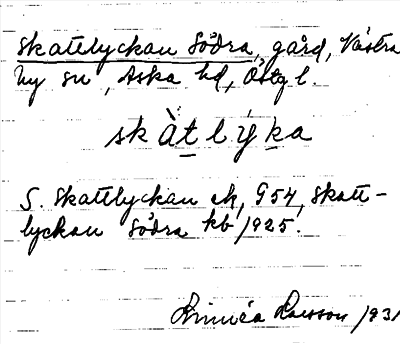 Skattlyckan Södra, gård, Västra
Ny sn, Aska hd, Östg l.
skàt lýka
S. Skattlyckan ek, G54, Skatt-
lyckan Södra kb 1925.
Linnéa Larsson 1931